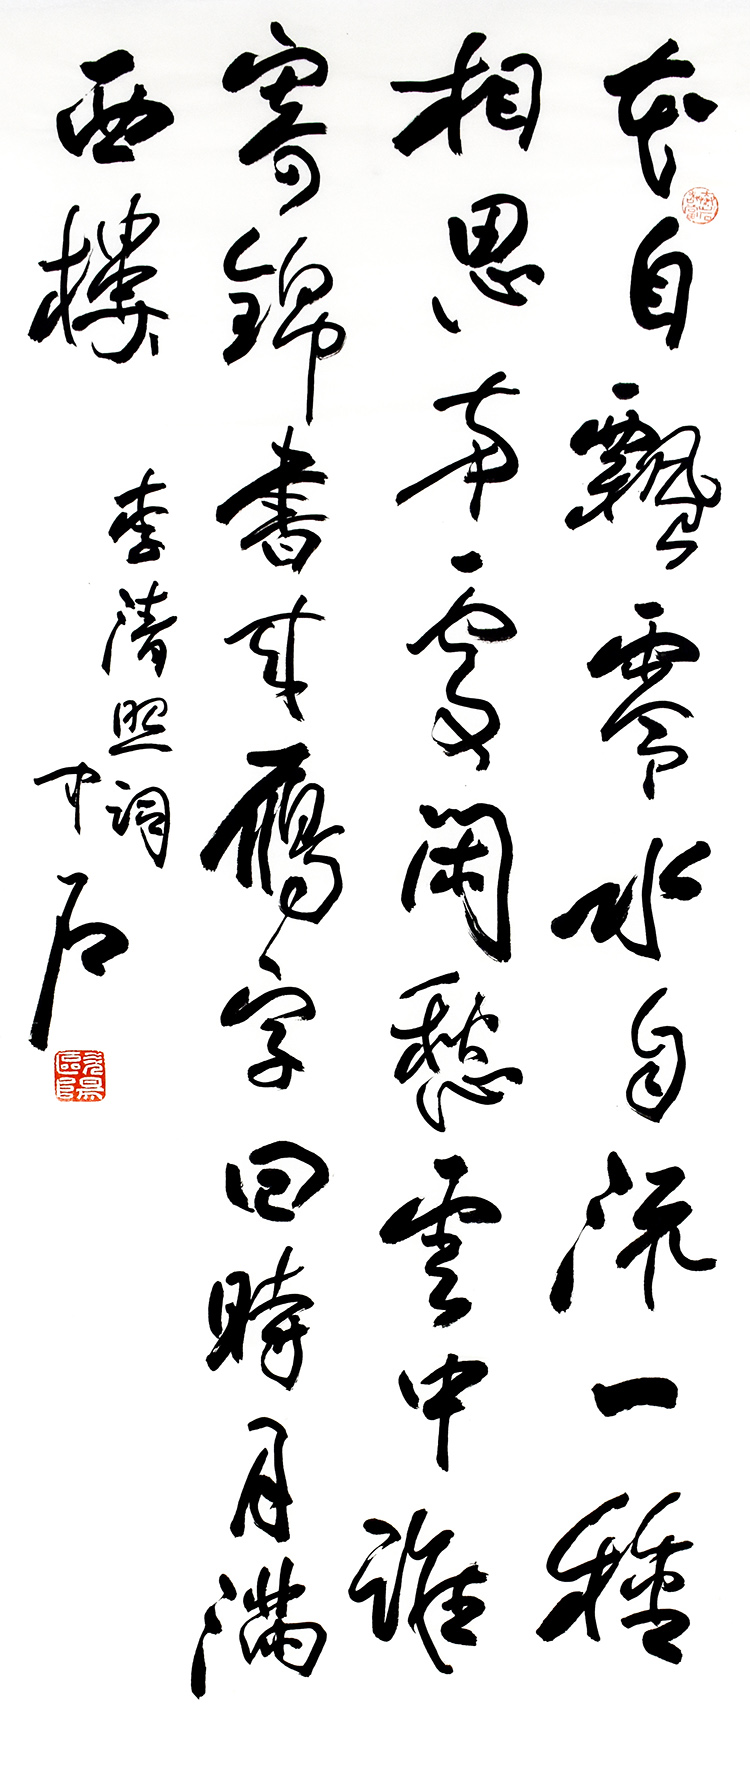 花自飄零水自流一種
相思兩處閑愁雲中誰
寄錦書來鴈字回時月滿
西樓
李清照詞
中石